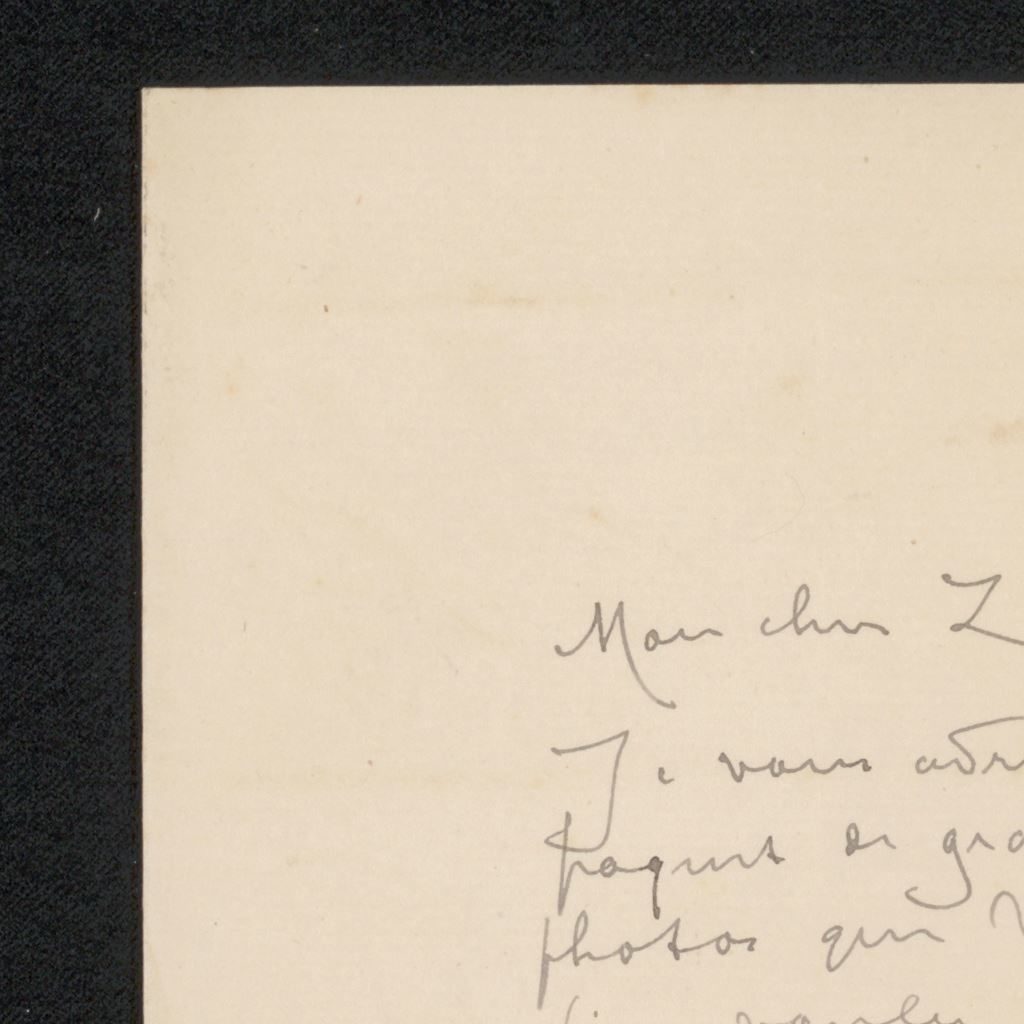 Mon cher Z
Je vous adr
paquet de gra
photos que V
voulu